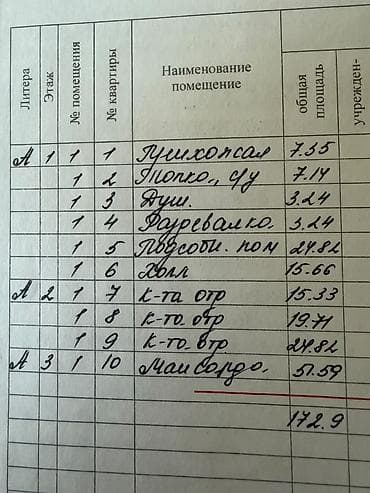 Литера Этаж № помещения № квартиры Наименование помещение общая площадь учрежден-
А 1 1 1 7.35
1 2 Топко., с/у 7.14
1 3 Душ. 3.24
1 4 Раздевалка. 3.24
1 5 Подсобн. пом 24.82
1 6 Холл 15.66
А 2 1 7 К-та отд 15.33
1 8 К-та. отд 19.71
1 9 К-та. отд 24.82
А 3 1 10 Мансарда. 51.59
172.9